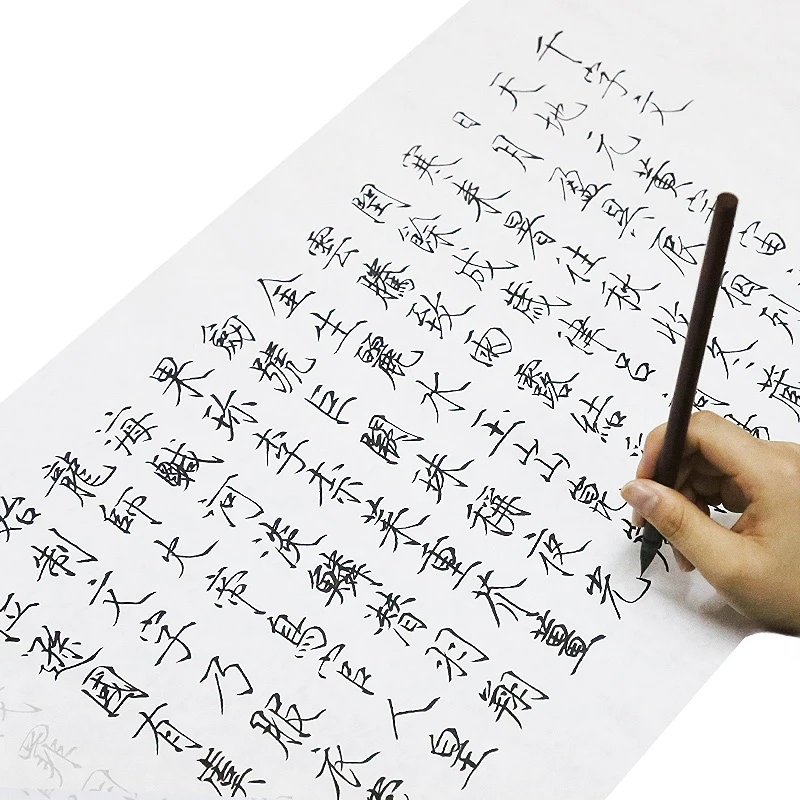 千字文
天地元黃宇宙
日月盈昃辰宿列
寒來暑往秋收冬藏
閏餘成歲律呂調
雲騰致雨露結
金生麗水玉出崑
劍號巨闕珠稱夜光
果珍李柰菜重芥薑
海鹹河淡鱗潛羽翔
龍師火帝鳥官人皇
始制文字乃服衣
位遜國有虞